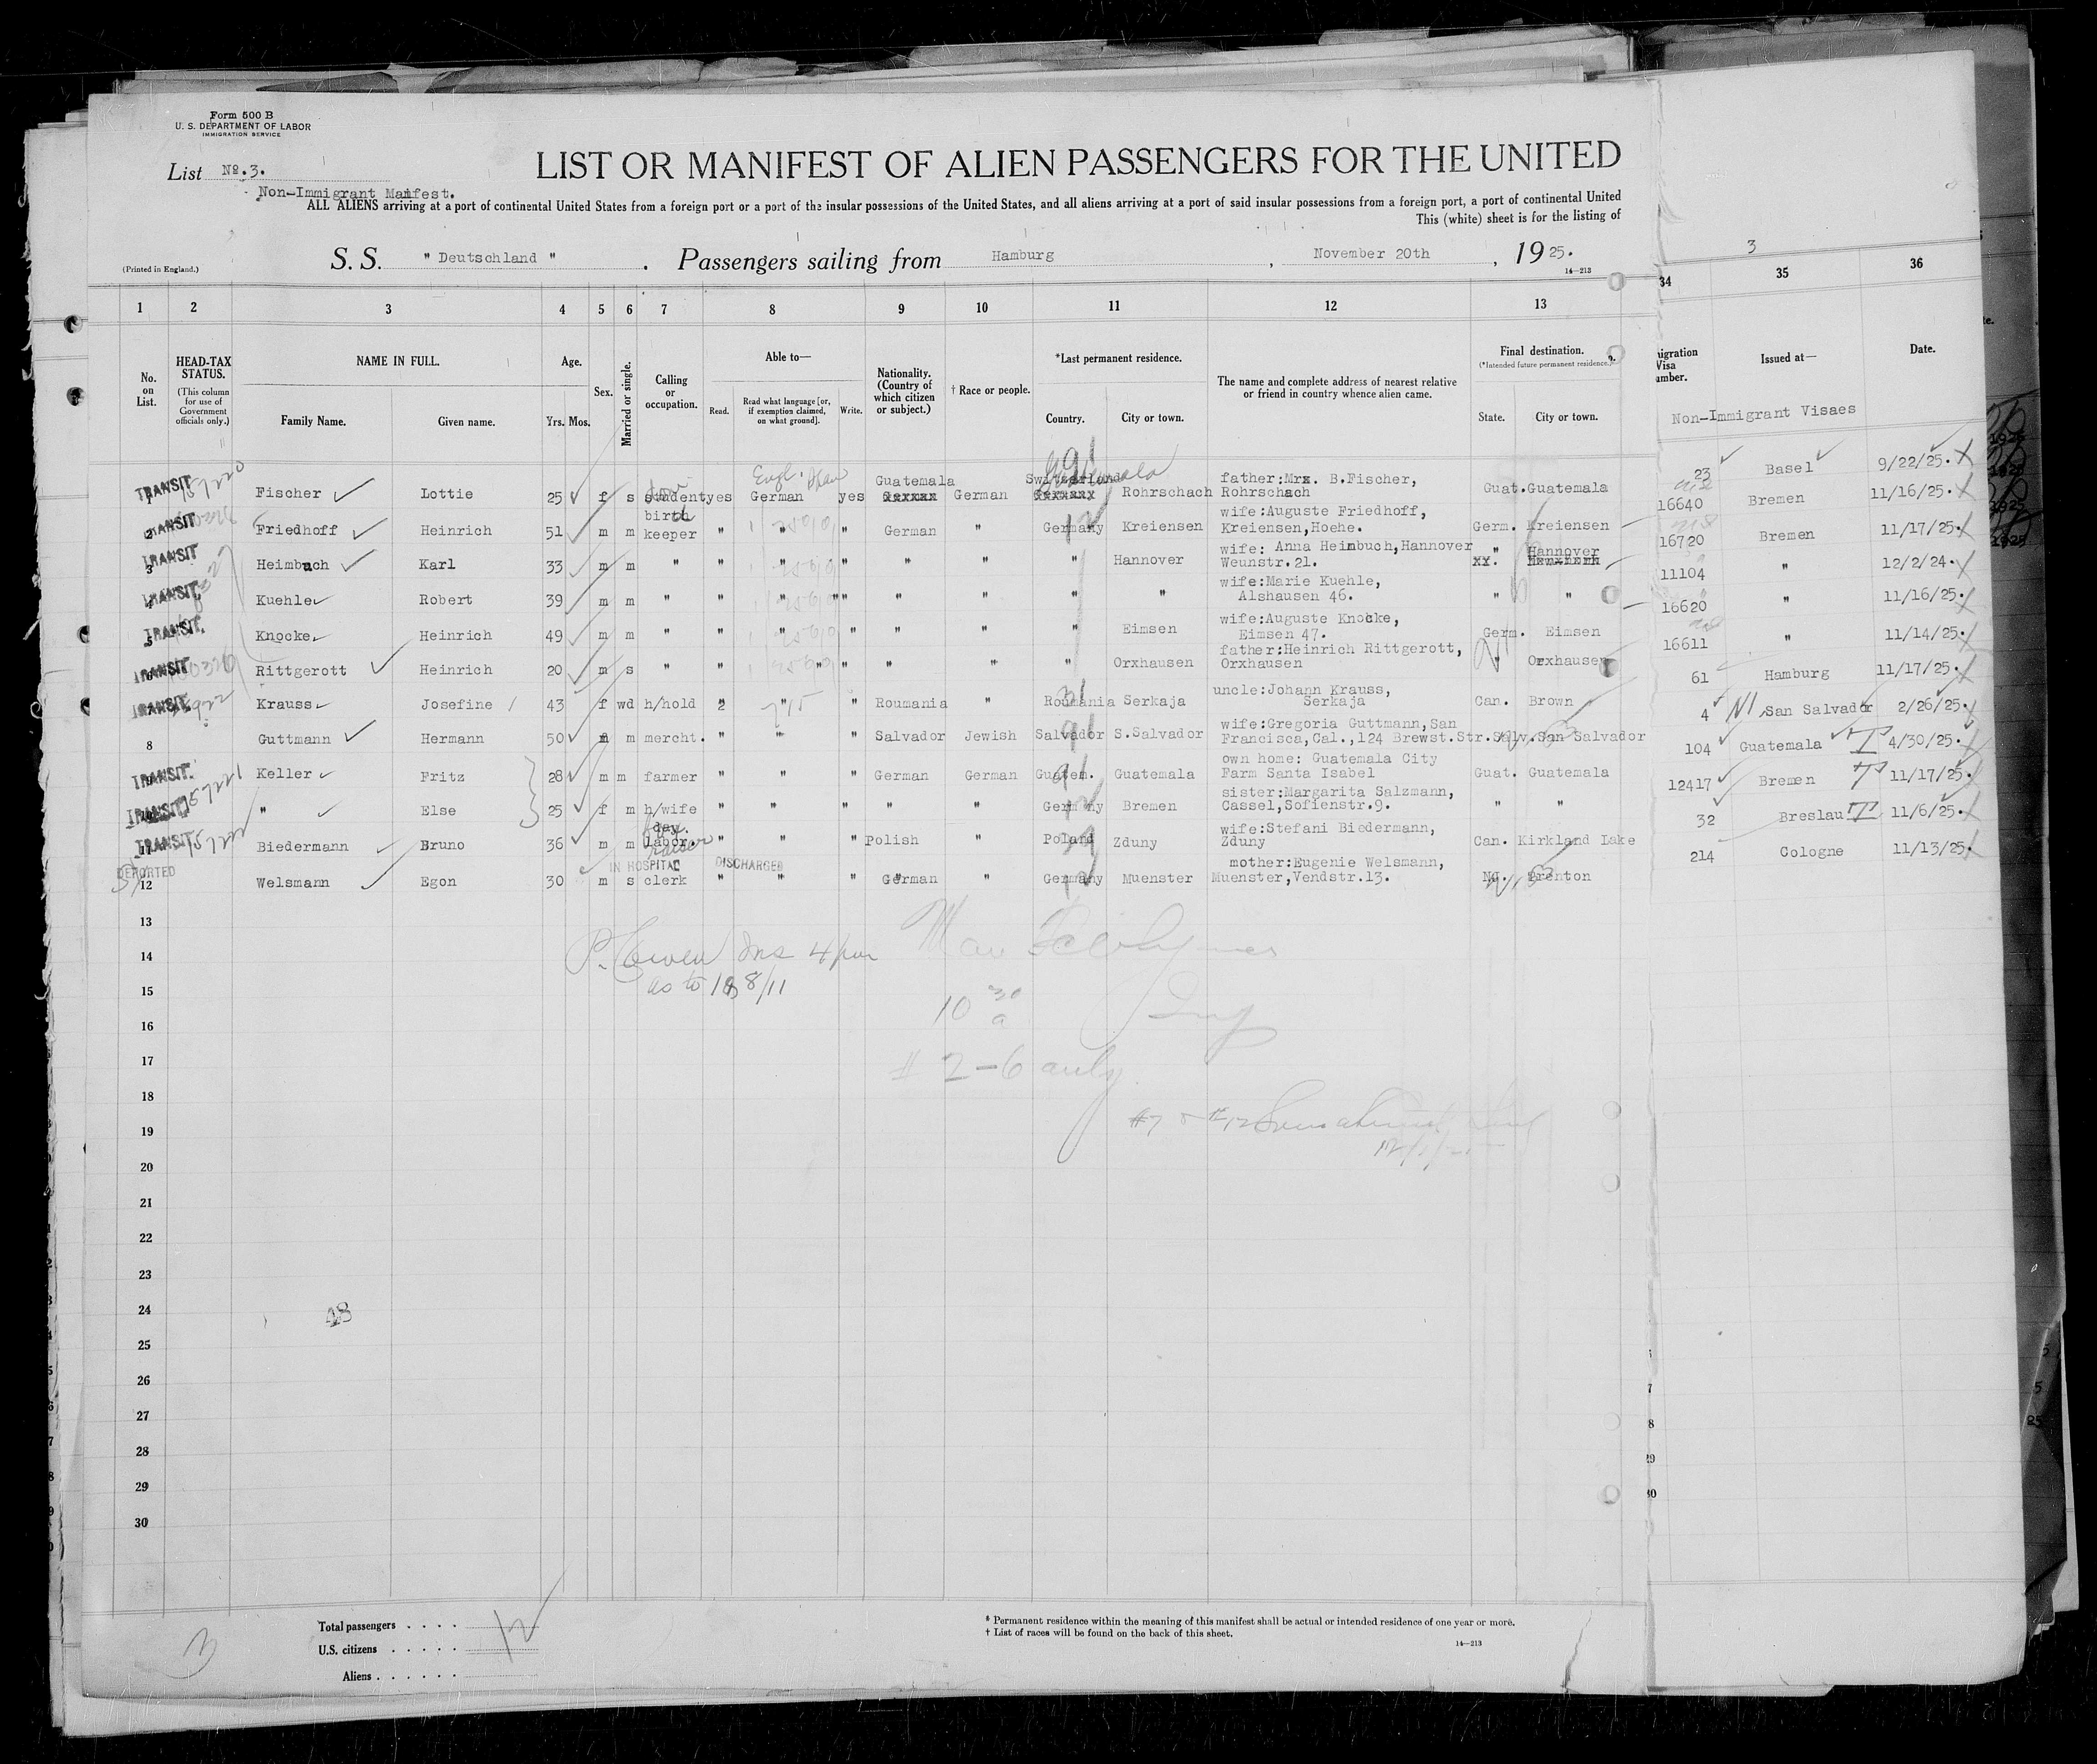 Form 500 B
U. S. DEPARTMENT OF LABOR
IMMIGRATION SERVICE
List No.3.
Non-Immigrant Manifest.
LIST OR MANIFEST OF ALIEN PASSENGERS FOR THE UNITED
ALL ALIENS arriving at a port of continental United States from a foreign port or a port of the insular possessions of the United States, and all aliens arriving at a port of said insular possessions from a foreign port, a port of continental United
This (white) sheet is for the listing of
(Printed in England.)
S. S. " Deutschland " . Passengers sailing from Hamburg , November 20th , 19 25.
14—213
3
1 2 3 4 5 6 7 8 9 10 11 12 13 34 35 36
No. on List.
HEAD-TAX STATUS.
(This column for use of Government officials only.)
NAME IN FULL.
Family Name. Given name.
Age.
Yrs. Mos.
Sex.
Married or single.
Calling or occupation.
Able to—
Read. Read what language [or, if exemption claimed, on what ground]. Write.
Nationality. (Country of which citizen or subject.)
† Race or people.
*Last permanent residence.
Country. City or town.
The name and complete address of nearest relative or friend in country whence alien came.
Final destination.
(*Intended future permanent residence.)
State. City or town.
Issued at— Date.
Non-Immigrant Visaes
TRANSIT 1 Fischer Lottie 25 f s student yes German yes Guatemala German Switzerland Guatemala Rohrschach father:Mrx. B.Fischer, Rohrschach Guat. Guatemala 23 Basel 9/22/25.
TRANSIT 2 Friedhoff Heinrich 51 m m birth keeper " " " German " Germany Kreiensen wife:Auguste Friedhoff, Kreiensen,Hoehe. Germ. Kreiensen 16640 Bremen 11/16/25.
TRANSIT 3 Heimbuch Karl 33 m m " " " " " " " Hannover wife: Anna Heimbuch,Hannover Weunstr.21. " Hannover 16720 Bremen 11/17/25.
TRANSIT. 4 Kuehle Robert 39 m m " " " " " " " " wife:Marie Kuehle, Alshausen 46. " " 11104 " 12/2/24.
TRANSIT. 5 Knocke Heinrich 49 m m " " " " " " " Eimsen wife:Auguste Knocke, Eimsen 47. Germ. Eimsen 16620 " 11/16/25.
TRANSIT 6 Rittgerott Heinrich 20 m s " " " " " " " Orxhausen father:Heinrich Rittgerott, Orxhausen " Orxhausen 16611 " 11/14/25.
TRANSIT. 7 Krauss Josefine 43 f wd h/hold " " " Roumania " Roumania Serkaja uncle:Johann Krauss, Serkaja Can. Brown 61 Hamburg 11/17/25.
8 Guttmann Hermann 50 m m mercht. " " " Salvador Jewish Salvador S.Salvador wife:Gregoria Guttmann,San Francisca,Cal.,124 Brewst.Str. Salv. San Salvador 4 San Salvador 2/26/25.
TRANSIT. 9 Keller Fritz 28 m m farmer " " " German German Guatem. Guatemala own home: Guatemala City Farm Santa Isabel Guat. Guatemala 104 Guatemala 4/30/25.
TRANSIT 10 " Else 25 f m h/wife " " " " " Germany Bremen sister:Margarita Salzmann, Cassel,Sofienstr.9. " " 12417 Bremen 11/17/25.
TRANSIT. 11 Biedermann Bruno 36 m m day. labor. " " " Polish " Poland Zduny wife:Stefani Biedermann, Zduny Can. Kirkland Lake 32 Breslau 11/6/25.
DEPORTED IN HOSPITAL DISCHARGED
12 Welsmann Egon 30 m s clerk " " " German " Germany Muenster mother:Eugenie Welsmann, Muenster,Vendstr.13. Trenton 214 Cologne 11/13/25.
13
14
15
16
17
18
19
20
21
22
23
24
25
26
27
28
29
30
Ins 4 pm
as to 8/11
10 30 a
# 2-6 only
48
Total passengers . . . . 12
U.S. citizens . . . . .
Aliens . . . . . .
3
* Permanent residence within the meaning of this manifest shall be actual or intended residence of one year or more.
† List of races will be found on the back of this sheet.
14—213